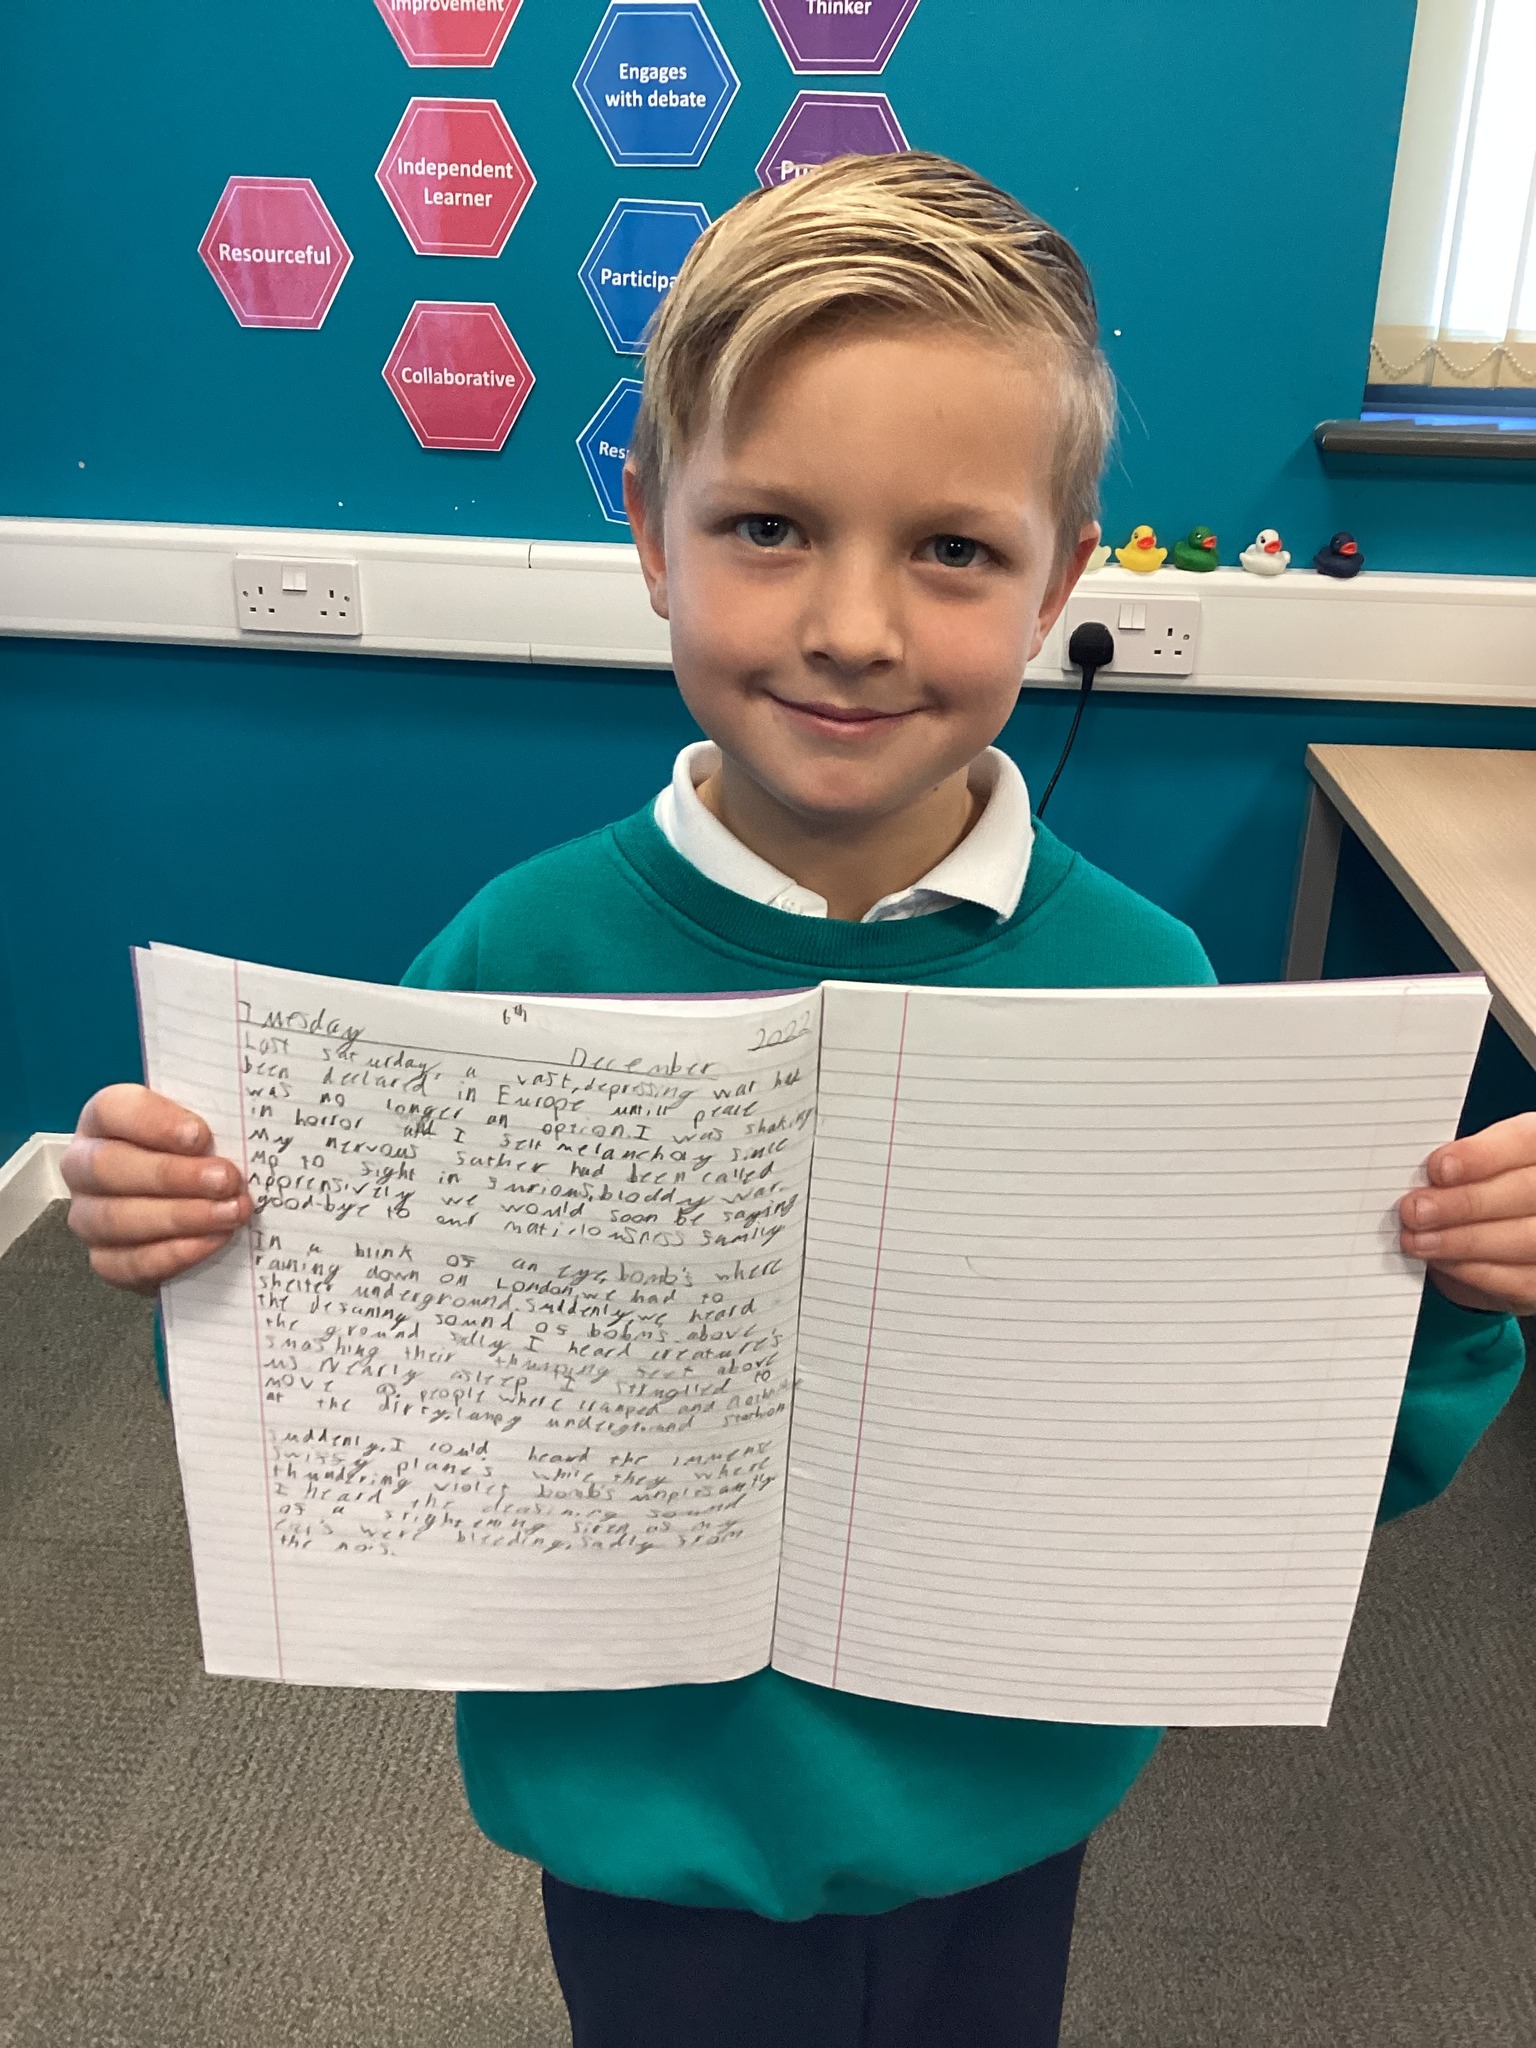 Improvement
Thinker
Engages
with debate
Independent
Learner
Resourceful
Collaborative
Tuesday 6th December 2022
Last saturday, a vast, depressing war had
been declared in Europe untill peace
was no longer an option. I was shaking
in horror and I felt melanchoy since
My nervous father had been called
up to fight in furious, bloddy war.
Apprensivtly we would soon be saying
good-bye to our family
In a blink of an eye, bomb's where
raining down on London, we had to
shelter underground. Suddenly, we heard
the defaning sound of bobm's above
the ground sadly I heard creature's
smashing their thumping feet above
us Nearly asleep I struglled to
move as people where cramped and
at the dirty, underground station
Suddenly, I could heard the immense
swifty plane's while they where
thundering violet bomb's unplesantly
I heard the deafining sound
of a frightening siren as my
ear's were bleeding, sadly from
the nois.